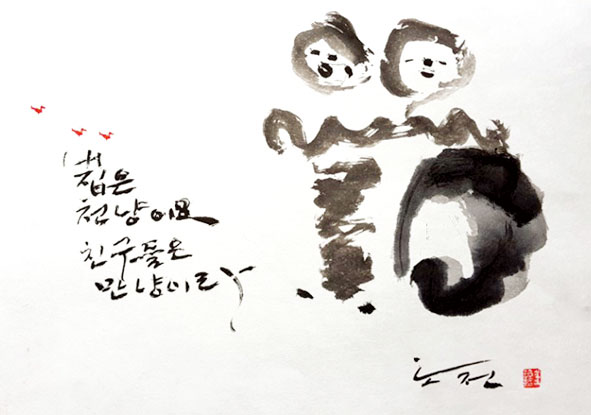 집은
천냥이요
친구들은
만냥이라
노전